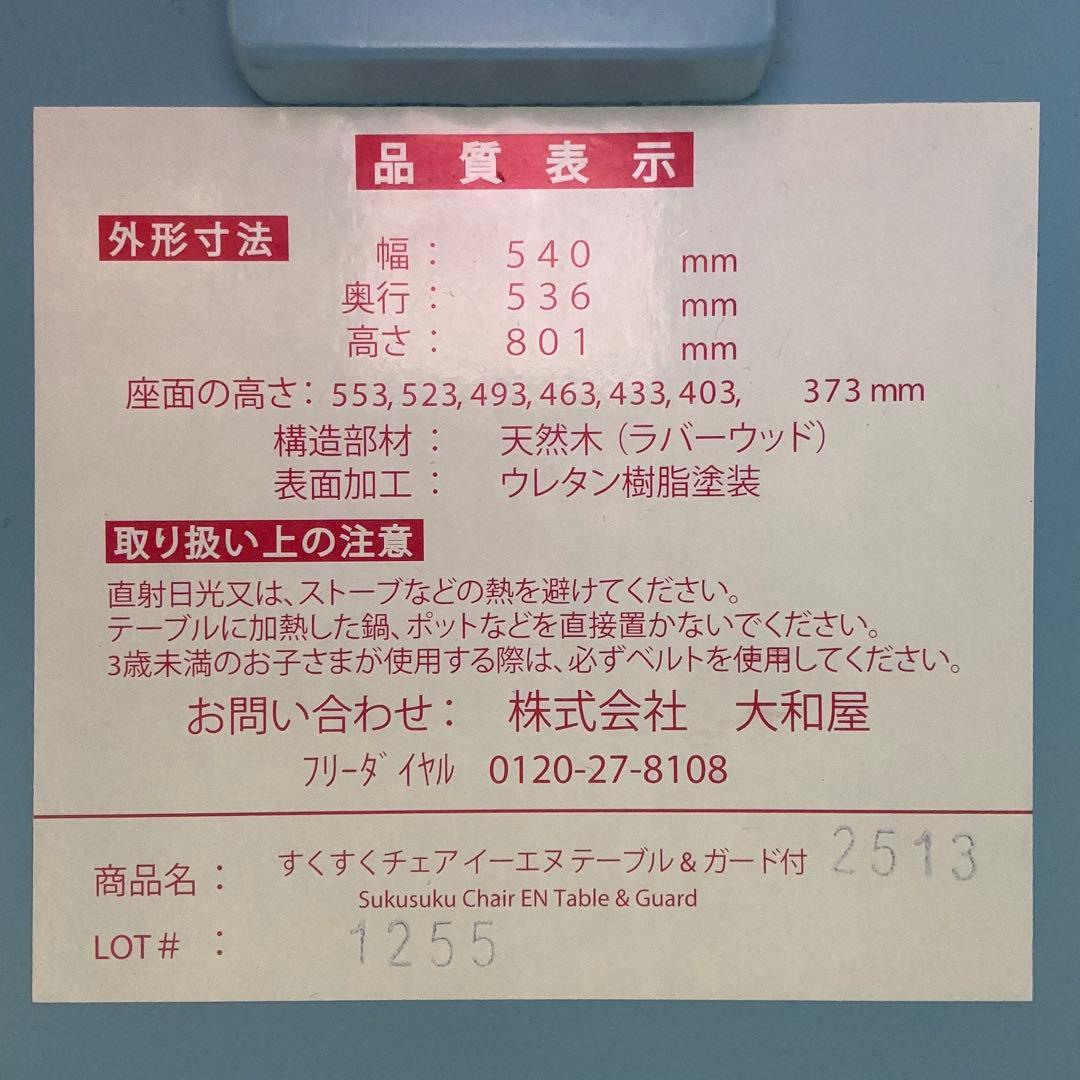 品質表示
外形寸法
幅： 540 mm
奥行： 536 mm
高さ： 801 mm
座面の高さ： 553, 523, 493, 463, 433, 403, 373 mm
構造部材： 天然木（ラバーウッド）
表面加工： ウレタン樹脂塗装
取り扱い上の注意
直射日光又は、ストーブなどの熱を避けてください。
テーブルに加熱した鍋、ポットなどを直接置かないでください。
3歳未満のお子さまが使用する際は、必ずベルトを使用してください。
お問い合わせ： 株式会社 大和屋
フリーダイヤル 0120-27-8108
商品名： すくすくチェアイーエヌテーブル＆ガード付 2513
Sukusuku Chair EN Table & Guard
LOT#： 1255